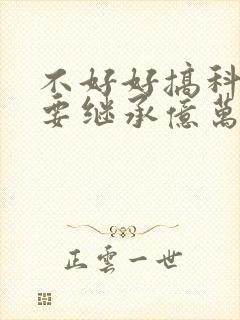 不好好搞科
要继承億萬
正雲一世